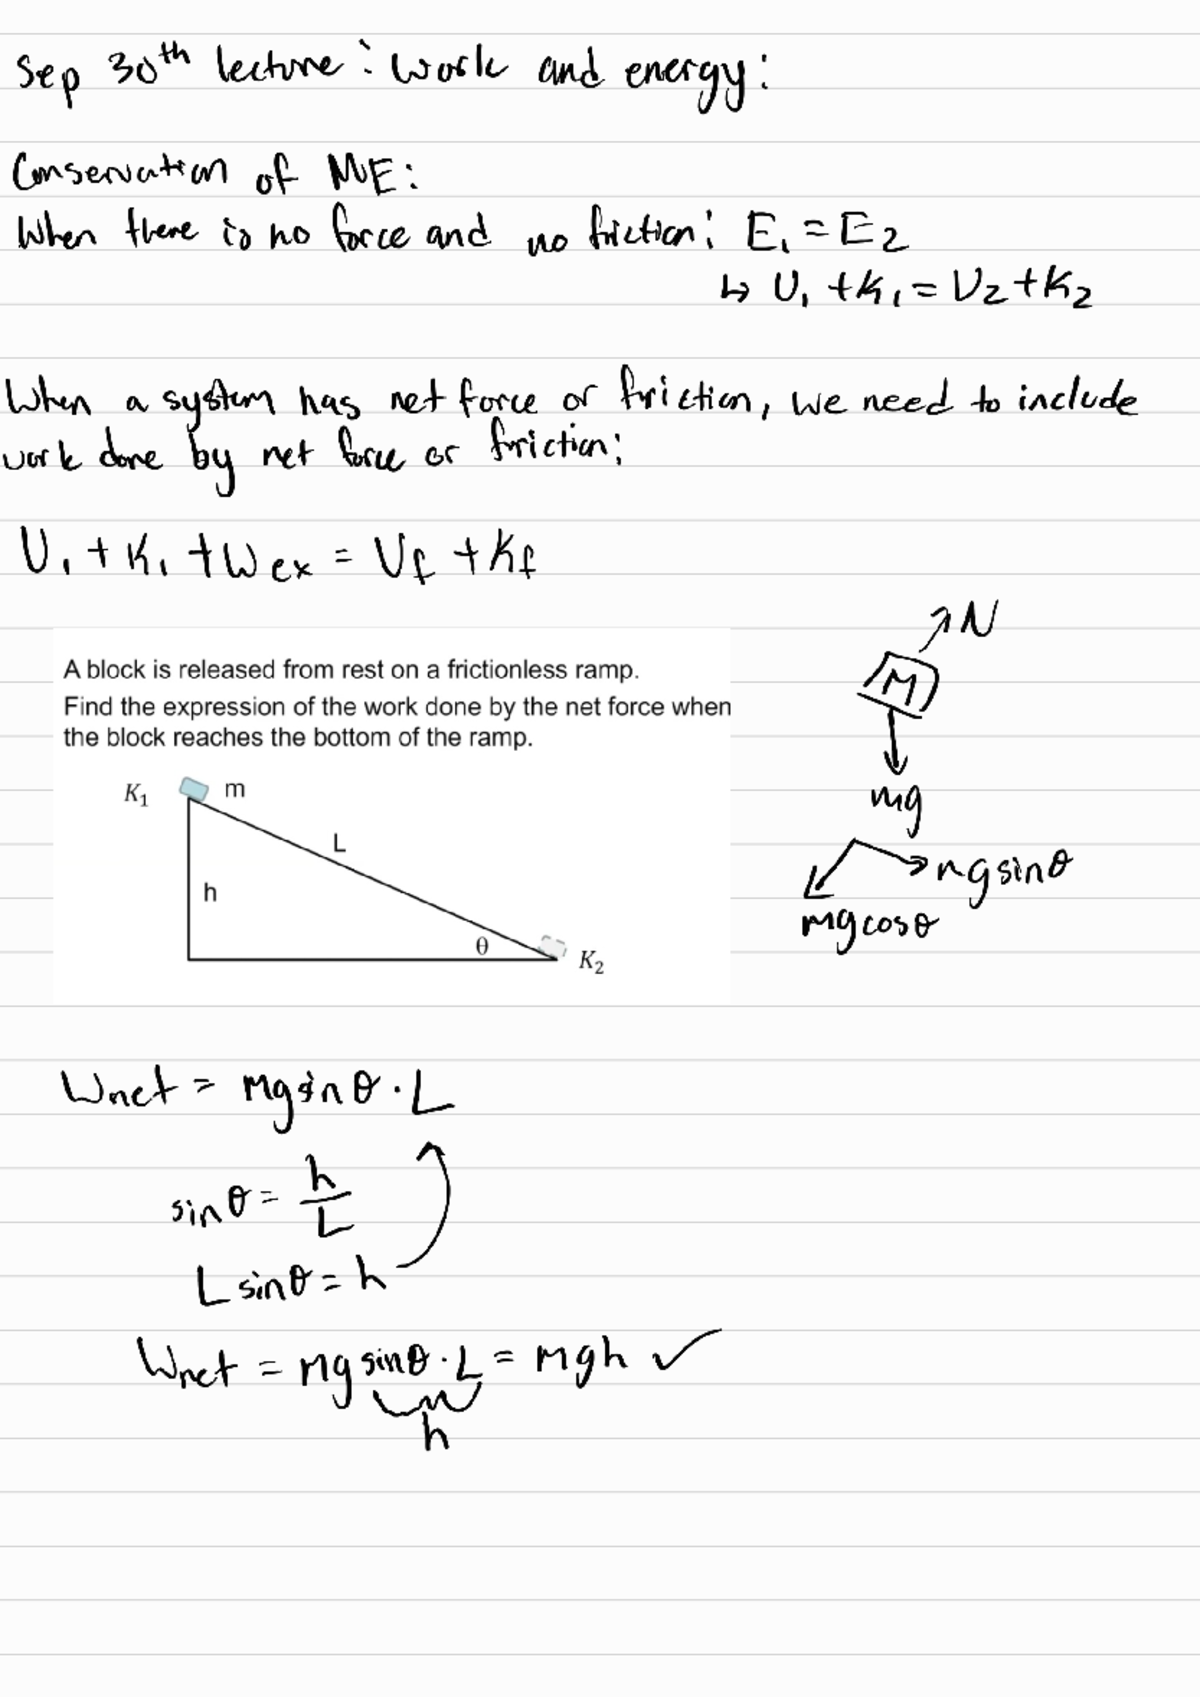 Sep 30th lecture: Work and energy:
Conservation of ME:
When there is no force and no friction: E₁ = E₂
↳ U₁ + K₁ = U₂ + K₂
When a system has net force or friction, we need to include
work done by net force or friction:
U₁ + K₁ + Wex = Uf + Kf
A block is released from rest on a frictionless ramp.
Find the expression of the work done by the net force when
the block reaches the bottom of the ramp.
K₁ m
L
h
θ
K₂
N
M
mg
mgsinθ
mgcosθ
Wnet = Mgsinθ · L
sinθ = h/L
L sinθ = h
Wnet = Mg sinθ · L = Mgh ✓
h